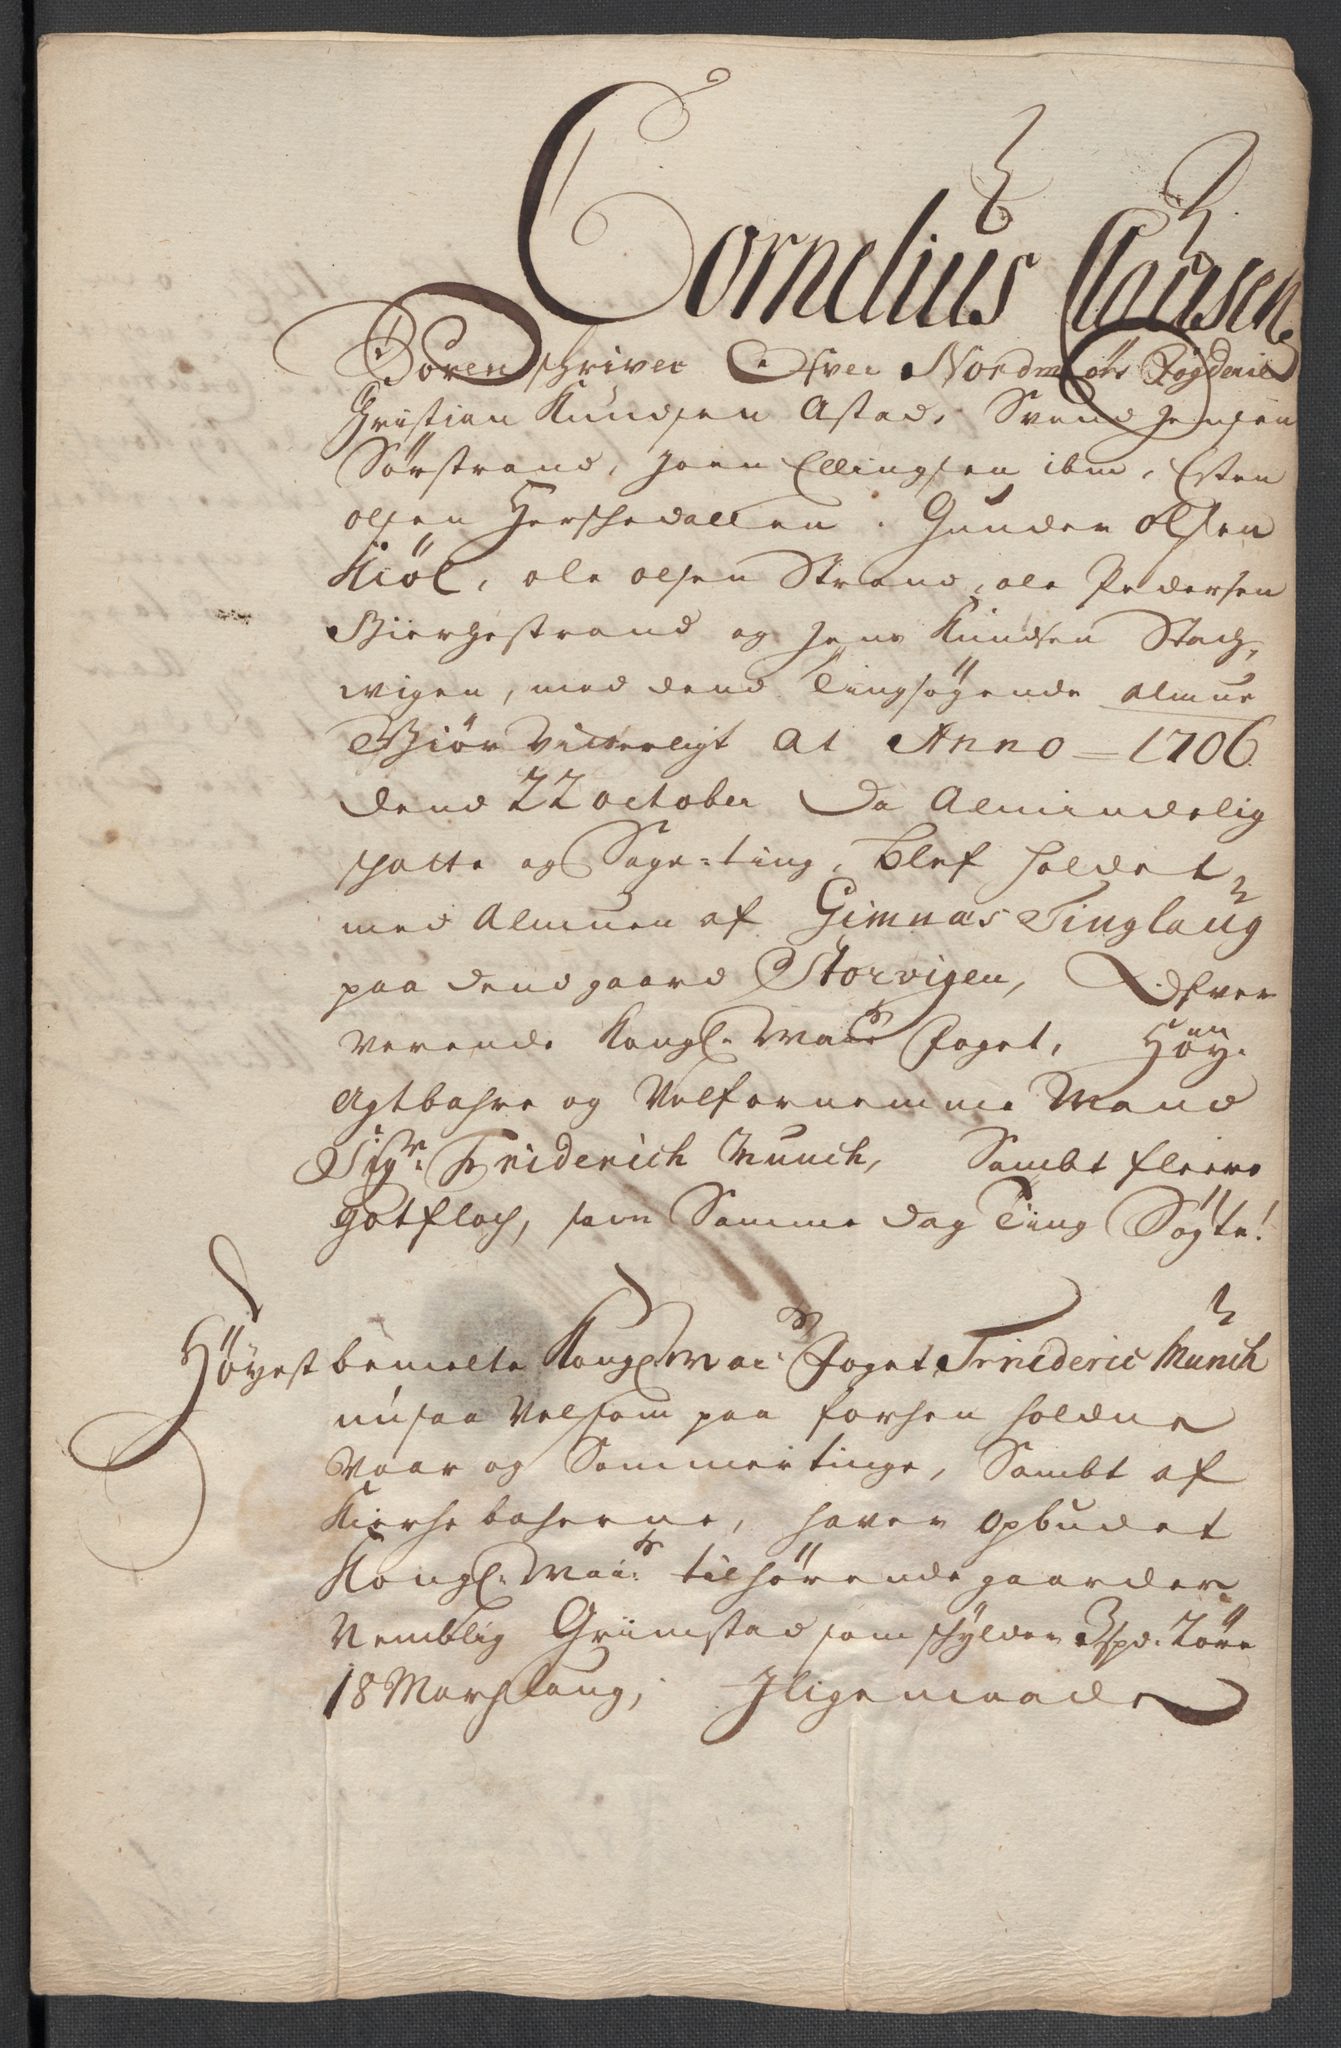 Cornelius Clausen
Sorenschriver Ofver Nordmøhrs Fogderie
Christian Knudsen Astad, Svend Jensen
Sørstrand, Joen Ellingsen ibm, Esten
olsen Herschedallen, Gunder olsen
Kiøl, ole olsen Strand, ole Pedersen
Bierchestrand og Jens Knudsen Stach,
wigen, med dend Tingsøgende Almue
Giør vitterligt At Anno 1706
dend 22 october Da Almindelig
schatte og Sage=ting, blef holdet
med Almuen af Gimnæs Tinglaug
paa dend gaard Storvigen, Ofver
verende Kongl. May.ts foget, Høy
Agtbahre og Velfornemme Mand
Sigr. Friderich Munch, Sambt fleere
gotfolch, som Samme dag Ting Søgte!
Høyest bemelte Kongl May.ts foget Friederic Munch
nu saa vel som paa forhen holdne
Vaar og Sommertinge, Sambt af
Kierche bachene, haver opbudet
Kongl. Mai.ts tilhørende gaarder
Nemblig Grimstad som schylder 3 spd. 2 øre
18 Marchlaug, Jligemaade